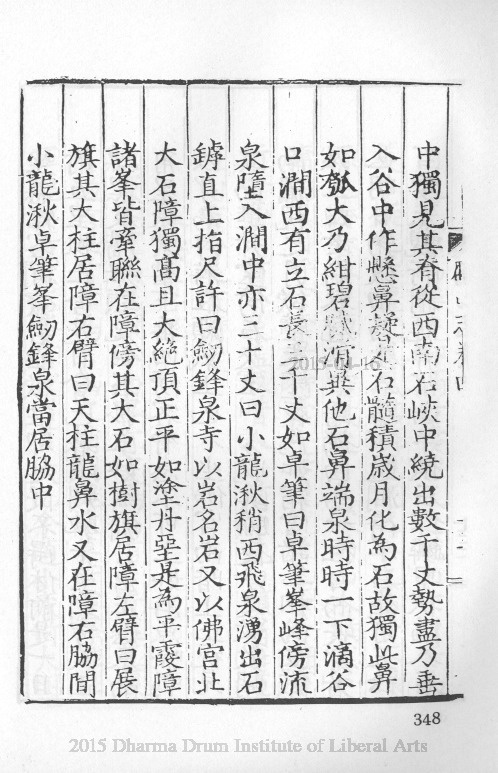 中獨見其脊從西南石峽中繞出數千丈勢盡乃垂
入谷中作懸鼻疑是石髓積歲月化為石故獨此鼻
如瓠大乃紺碧膩滑與他石鼻端泉時時一下滴谷
口澗西有立石長千丈如卓筆曰卓筆峯峰傍流
泉墮入澗中亦三十丈曰小龍湫稍西飛泉湧出石
罅直上指尺許曰劒鋒泉寺以岩名岩又以佛宮北
大石障獨高且大絶頂正平如塗丹堊是為平霞障
諸峯皆牽聯在障傍其大石如樹旗居障左臂曰展
旗其大柱居障右臂曰天柱龍鼻水又在障右脇間
小龍湫卓筆峯劒鋒泉當居脇中
348
2015 Dharma Drum Institute of Liberal Arts